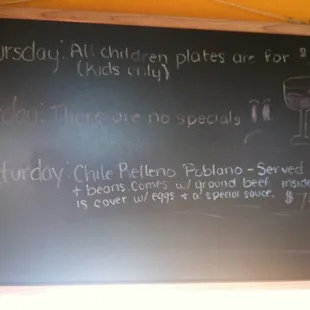 ursday: All children plates are for $
(kids only)
day: There are no specials !!
turday: Chile Relleno Poblano - Served
+ beans. Comes w/ ground beef inside
is cover w/ eggs + a special sauce. $7